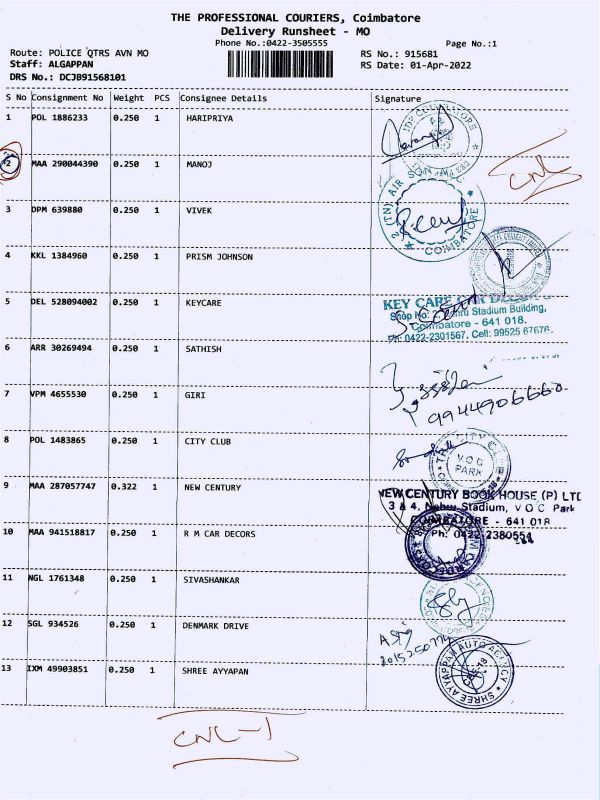 THE PROFESSIONAL COURIERS, Coimbatore
Delivery Runsheet - MO
Phone No.:0422-3505555
Page No.:1
Route: POLICE QTRS AVN MO
RS No.: 915681
Staff: ALGAPPAN
RS Date: 01-Apr-2022
DRS No.: DCJB91568101
S No Consignment No Weight PCS Consignee Details Signature
1 POL 1886233 0.250 1 HARIPRIYA
2 MAA 290044390 0.250 1 MANOJ
CNL
(TN) AIR SQN
COIMBATORE
3 DPM 639880 0.250 1 VIVEK
4 KKL 1384960 0.250 1 PRISM JOHNSON
5 DEL 528094002 0.250 1 KEYCARE
KEY CARE CAR
Shop No: Stadium Building,
Coimbatore - 641 018.
Ph: 0422-2301567, Cell: 99525 67676.
6 ARR 30269494 0.250 1 SATHISH
7 VPM 4655530 0.250 1 GIRI
9944906660
8 POL 1483865 0.250 1 CITY CLUB
CITY CLUB
V O C
PARK
9 MAA 287057747 0.322 1 NEW CENTURY
NEW CENTURY BOOK HOUSE (P) LTD
3 & 4, Nehru Stadium, V O C Park
COIMBATORE - 641 018
Ph: 0422-2380554
10 MAA 941518817 0.250 1 R M CAR DECORS
11 NGL 1761348 0.250 1 SIVASHANKAR
12 SGL 934526 0.250 1 DENMARK DRIVE
13 IXM 49903851 0.250 1 SHREE AYYAPAN
SHREE AYYAPPAN AUTO AGENCY
CBE-18
CNL-1